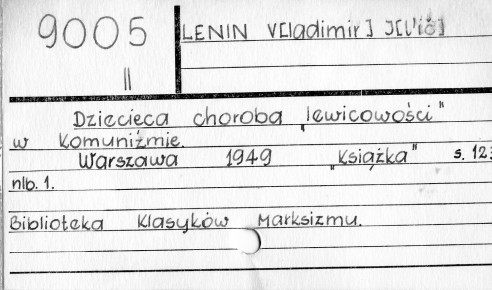 9005
II
LENIN V[ladimir] J[l'ič]
Dziecięca choroba „lewicowości"
w Komuniźmie.
Warszawa 1949 „Książka" s. 123
nlb. 1.
Biblioteka Klasyków Marksizmu.